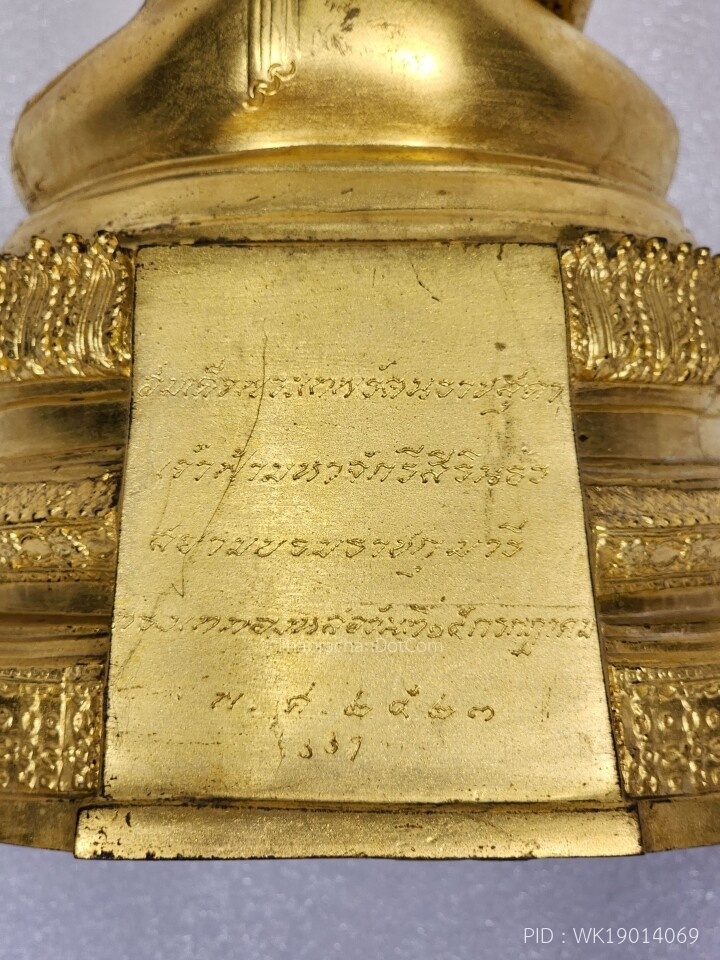 สมเด็จพระเทพรัตนราชสุดา
เจ้าฟ้ามหาจักรีสิรินธร
สยามบรมราชกุมารี
ทรงเททองหล่อวันที่ ๑๕ กรกฎาคม
พ.ศ. ๒๕๒๓
ThaprachanDotCom
PID : WK19014069